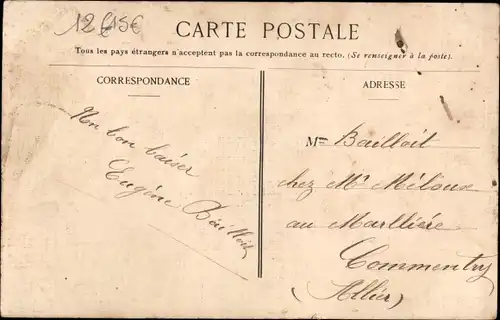 CARTE POSTALE
Tous les pays étrangers n'acceptent pas la correspondance au recto. (Se renseigner à la poste).
CORRESPONDANCE
ADRESSE
Un bon baiser
Eugène Bailloit
Mme Bailloit
chez Mr Méloux
au Marllière
Commentry
(Allier)